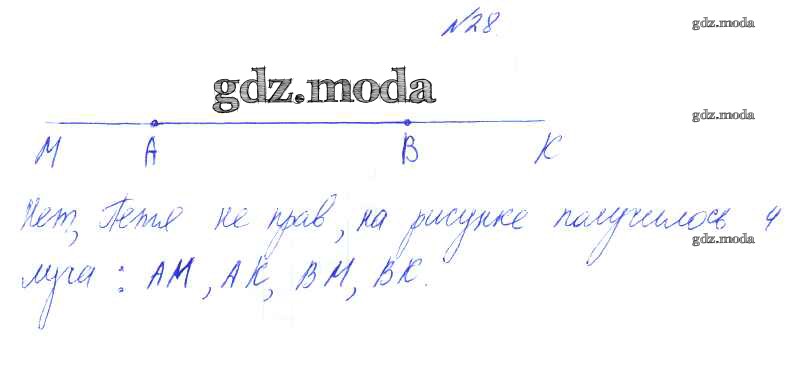 №28.
gdz.moda
gdz.moda
gdz.moda
М А В К
Нет, Петя не прав, на рисунке получилось 4
gdz.moda
луча: АМ, АК, ВМ, ВК.